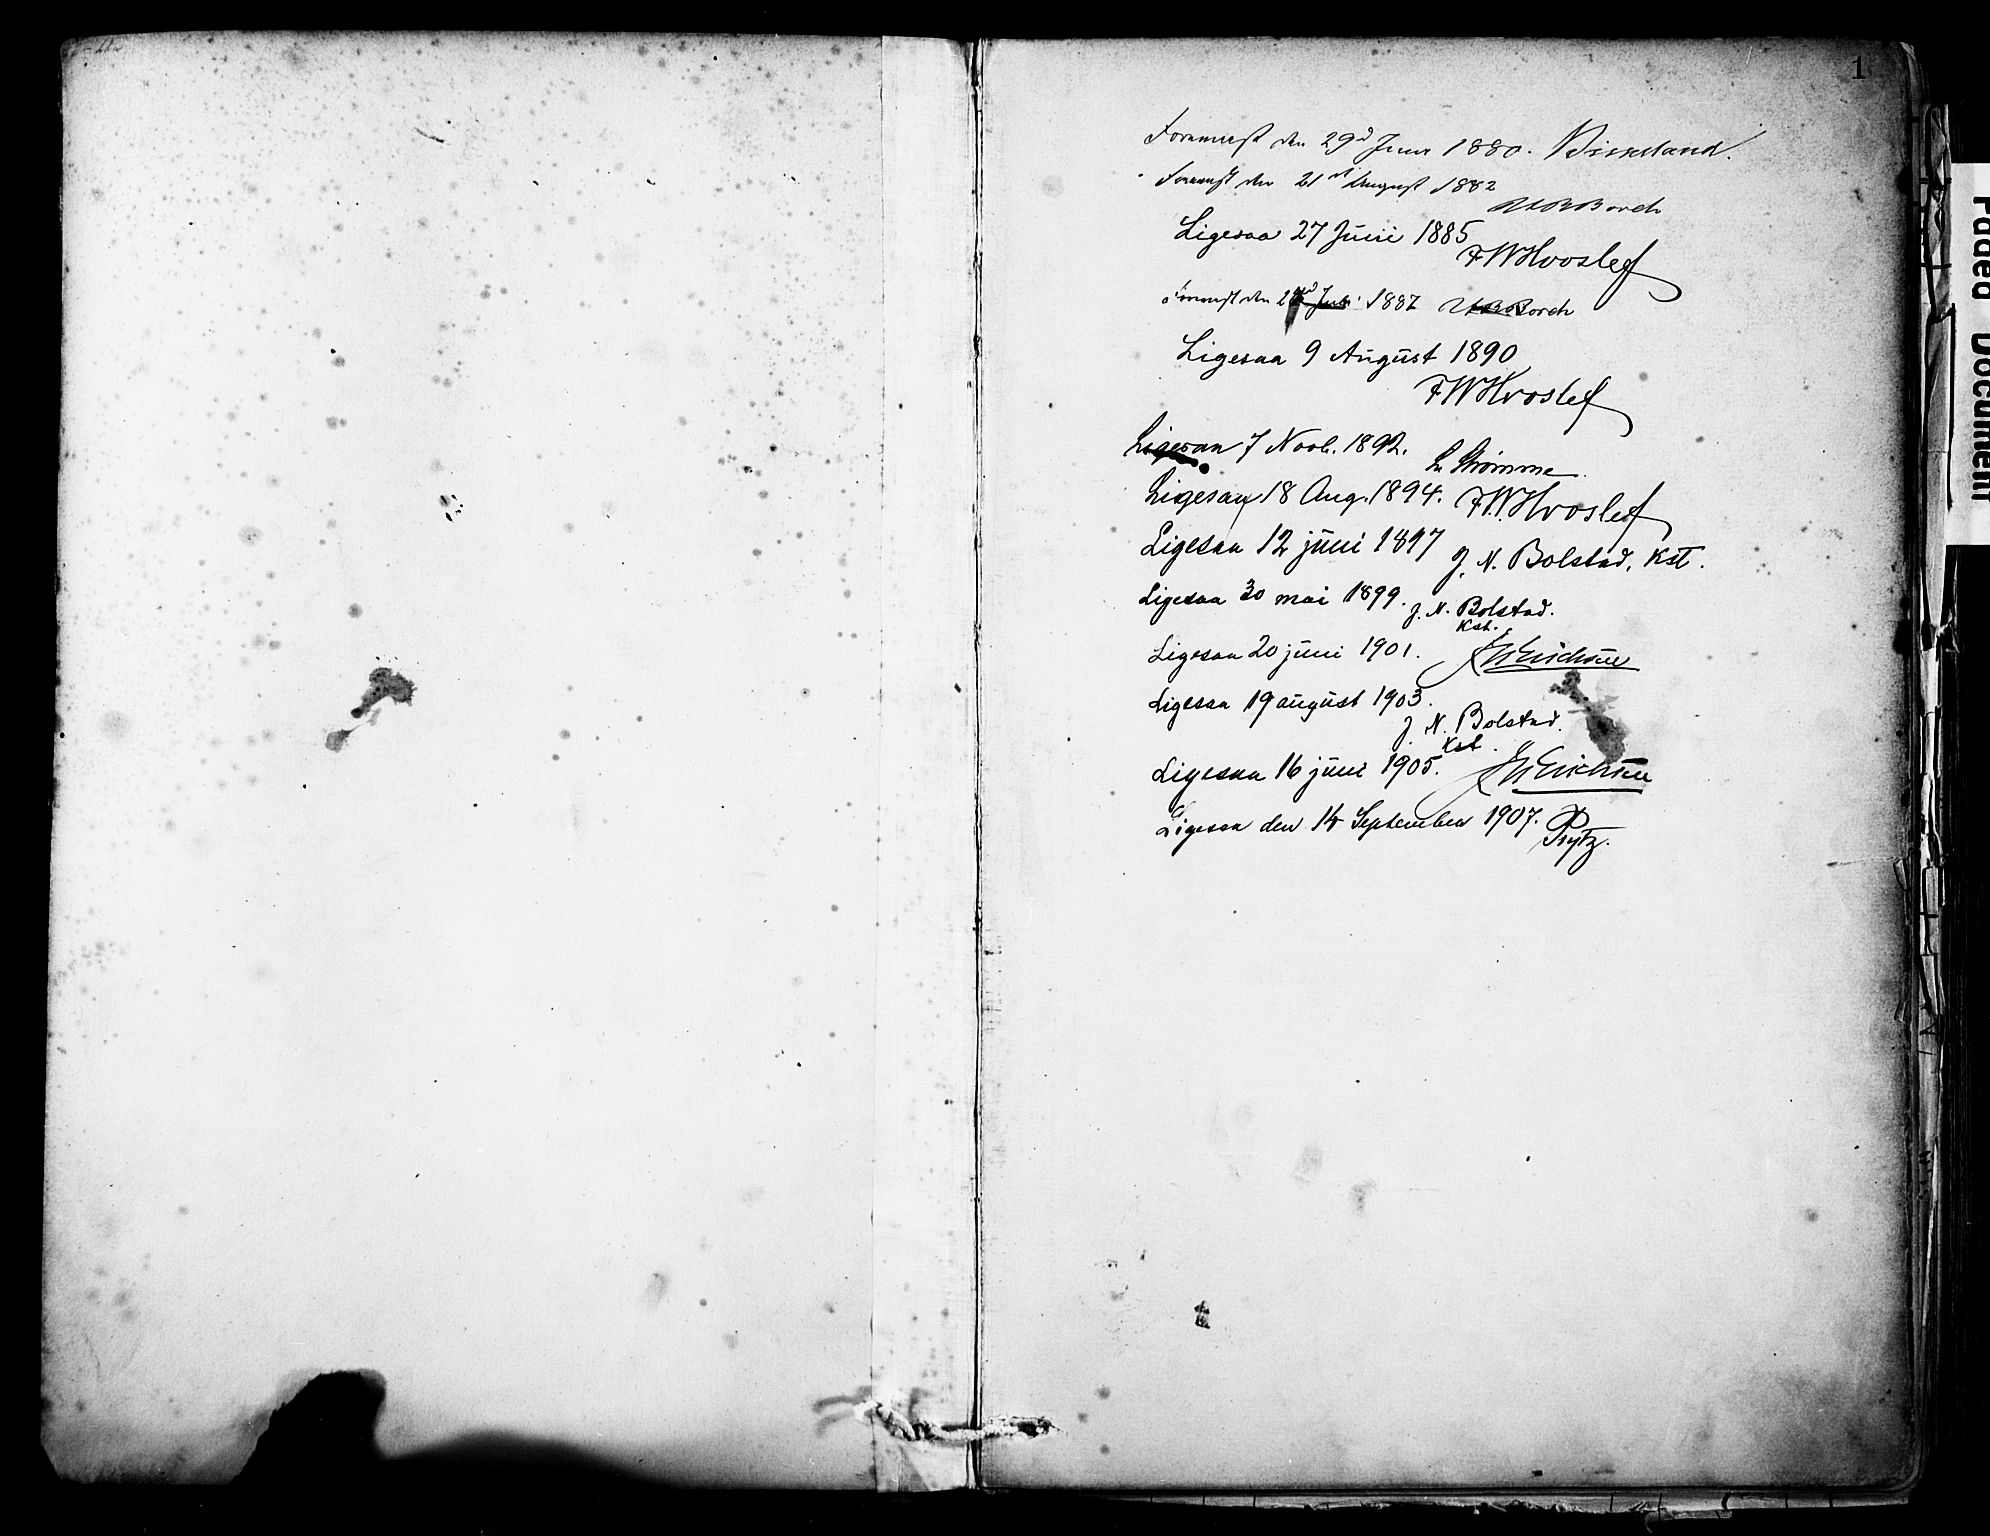 1
den 29d Juni 1880. Bisseland.
den 21st August 1882
Borch
Ligesaa 27 Juni 1885
FWHvoslef
den 1887 Borch
Ligesaa 9 August 1890
FWHvoslef
Ligesaa 7 Novb. 1892.
Strømme
Ligesaa 18 Aug. 1894. F.W.Hvoslef
Ligesaa 12 juni 1897
J. N. Bolstad, Kst.
Ligesaa 30 mai 1899. J. N. Bolstad.
Kst.
Ligesaa 20 juni 1901.
Ligesaa 19 august 1903.
J. N. Bolstad.
Kst.
Ligesaa 16 juni 1905.
Ligesaa den 14 September 1907. Prytz.
Faded Document